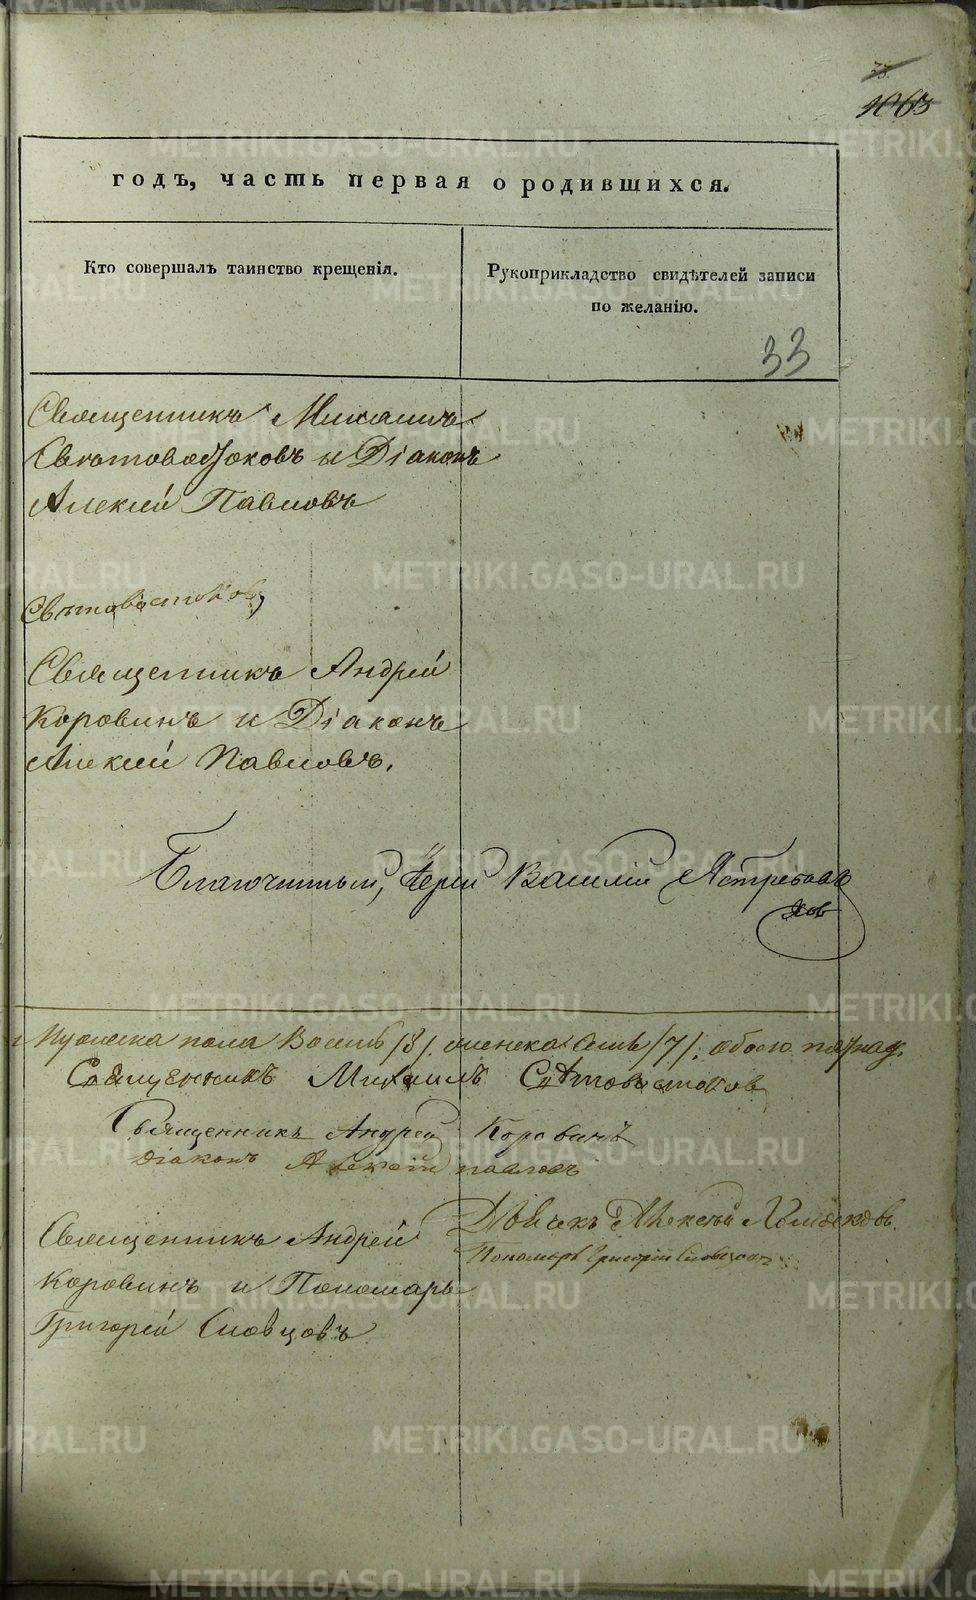 33.
1063
годъ, часть первая о родившихся.
Кто совершалъ таинство крещенія.
Рукоприкладство свидѣтелей записи
по желанію.
33
Священникъ Михаилъ
Свѣтовостоковъ и Діаконъ
Алексій Павловъ
Свѣтовостоковъ
Священникъ Андрей
Коровинъ и Діаконъ
Алексій Павловъ.
Благочинный, Іерей Василій Ястребовъ
Мужеска пола Восемь /8/. женска Семь /7/. обоего
Священникъ Михаилъ Свѣтовостоковъ
Священникъ Андрей Коровинъ
Діаконъ Алексій Павловъ
Дьячекъ Алексѣй
Пономарь Григорій Словцовъ
Священникъ Андрей
Коровинъ и Пономарь
Григорій Словцовъ
METRIKI.GASO-URAL.RU